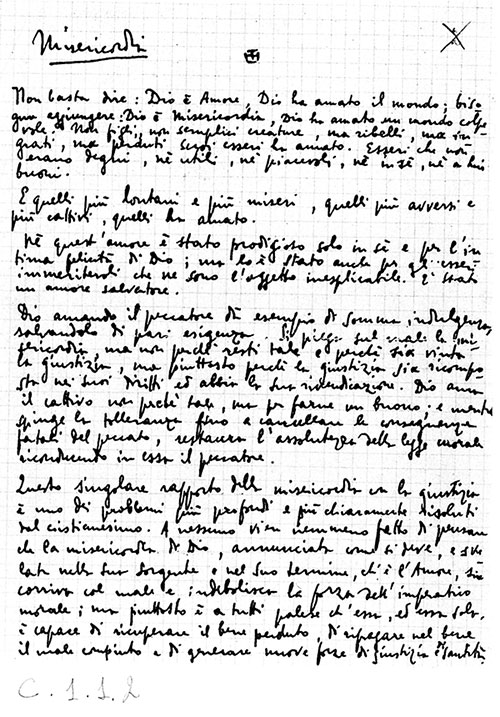 Misericordia
Non basta dire: Dio è Amore, Dio ha amato il mondo; biso-
gna aggiungere: Dio è Misericordia, Dio ha amato un mondo colpe-
vole. Non figli, non semplici creature, ma ribelli, ma in-
grati, ma perduti suoi esseri ha amato. Esseri che non
erano degni, nè utili, nè piacevoli, nè in sè, nè a lui
buoni.
E quelli più lontani e più miseri, quelli più avversi e
più cattivi, quelli ha amato.
Nè quest'amore è stato prodigioso solo in sè e per l'in-
tima felicità di Dio; ma lo è stato anche per gli esseri
immeritevoli che ne sono l'oggetto inesplicabile. È stato
un amore salvatore.
Dio amando il peccatore dà esempio di somma indulgenza,
salvandolo di pari esigenza. Si piega sul male la mi-
sericordia, ma non perchè resti tale e perchè sia vinta
la giustizia, ma piuttosto perchè la giustizia sia ricompo-
sta nei suoi diritti ed abbia la sua rivendicazione. Dio ama
il cattivo non perchè tale, ma per farne un buono; e mentre
spinge la tolleranza fino a cancellare le conseguenze
fatali del peccato, restaura l'assolutezza della legge morale
riconducendo in essa il peccatore.
Questo singolare rapporto della misericordia con la giustizia
è uno dei problemi più profondi e più chiaramente risoluti
dal cristianesimo. A nessuno vien nemmeno fatto di pensare
che la misericordia di Dio, annunciata come si deve, e
nella sua sorgente e nel suo termine, ch'è l'Amore, sia
corriva col male e indebolisca la forza dell'imperativo
morale; ma piuttosto è a tutti palese ch'essa, ed essa sola,
è capace di ricuperare il bene perduto, di ripagare nel bene
il male compiuto e di generare nuove forze di giustizia e di santità.
C. 1.1.2